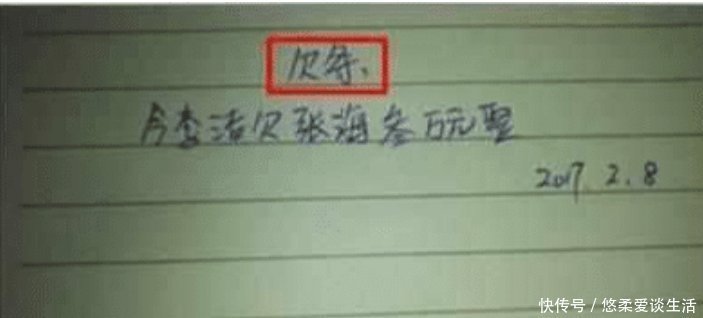 欠条、
今李洁欠张海叁万元整
2017.2.8
快传号/悠柔爱谈生活